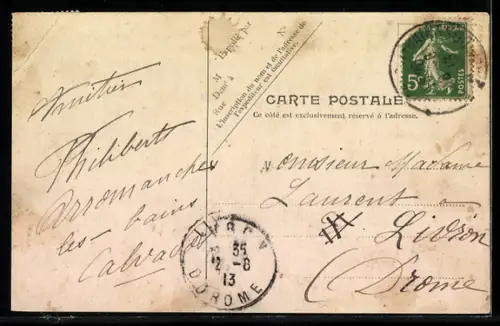 Amitiés
Philiberts
Arromanches
les-bains
Calvados
Expédié par
M
Demt à
Rue
N°
L'inscription du nom et de l'adresse de
l'expéditeur est facultative.
CARTE POSTALE
Ce côté est exclusivement réservé à l'adresse.
5c
POSTES
Monsieur Madame
Laurent
Livron
(Drome)
LIVRON
35
12-8
13
DROME